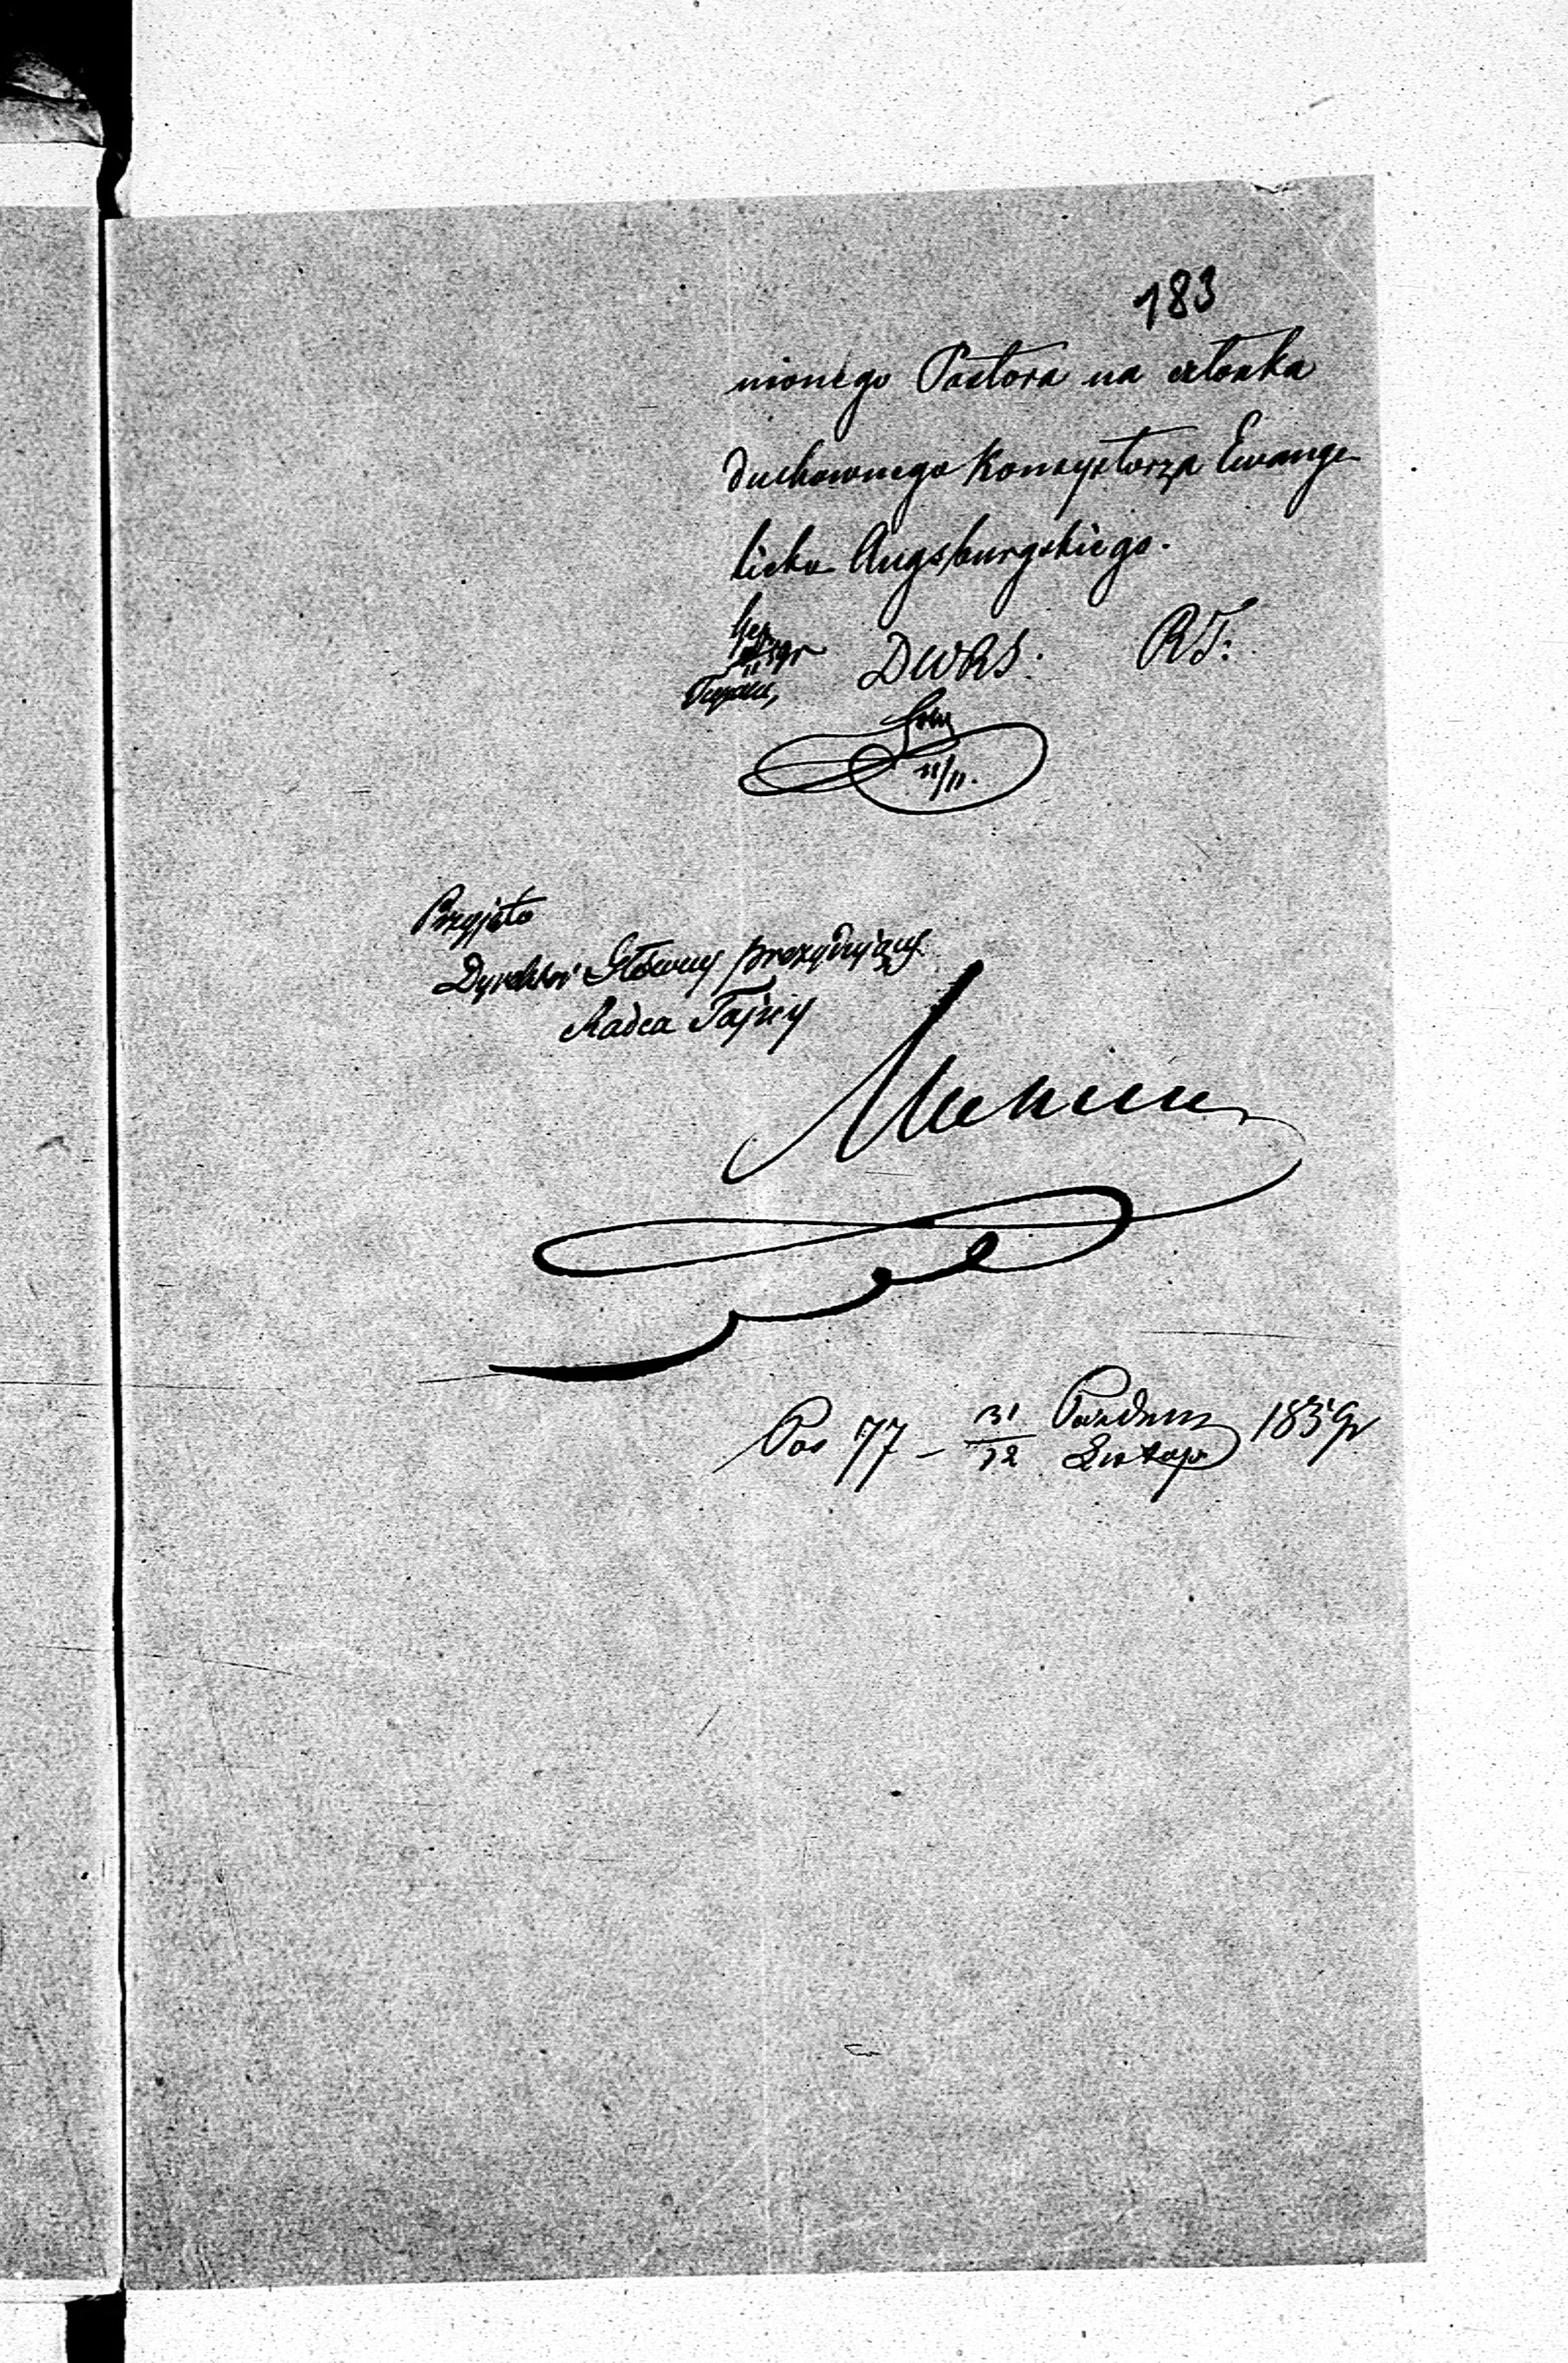 183
nionego Pastora na członka
duchownego Konsystorza Ewange-
licko Augsburgskiego.
DWRS. RT:
11/11.
Przyjęto
Dyrektor Główny prezydujący
Radca Tajny
Pos 77 - 31/12 Paździer/Listopa 1839r